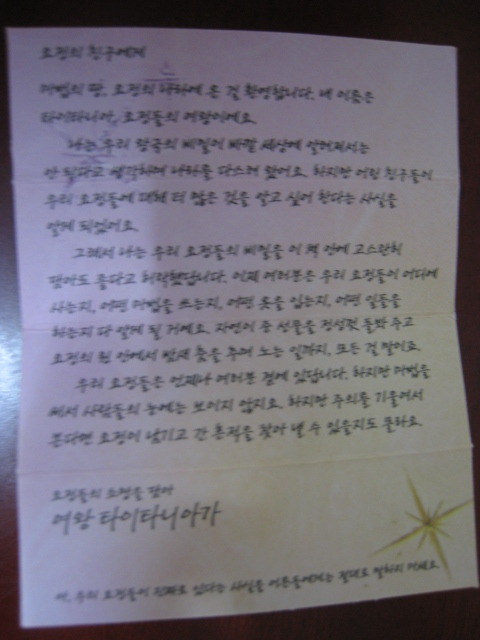 요정의 친구에게
마법의 땅, 요정의 나라에 온 걸 환영합니다. 내 이름은
타이타니아, 요정들의 여왕이에요.
나는 우리 왕국의 비밀이 바깥 세상에 알려져서는
안 된다고 생각하며 나라를 다스려 왔어요. 하지만 어린 친구들이
우리 요정들에 대해 더 많은 것을 알고 싶어 한다는 사실을
알게 되었어요.
그래서 나는 우리 요정들의 비밀을 이 책 안에 고스란히
담아도 좋다고 허락했답니다. 이제 여러분은 우리 요정들이 어디에
사는지, 어떤 마법을 쓰는지, 어떤 옷을 입는지, 어떤 일들을
하는지 다 알게 될 거예요. 자연이 준 선물을 정성껏 돌봐 주고
요정의 원 안에서 밤새 춤을 추며 노는 일까지, 모든 걸 말이죠.
우리 요정들은 언제나 여러분 곁에 있답니다. 하지만 마법을
써서 사람들의 눈에는 보이지 않지요. 하지만 주의를 기울여서
본다면 요정이 남기고 간 흔적을 찾아 낼 수 있을지도 몰라요.
요정들의 소망을 담아
여왕 타이타니아가
아, 우리 요정들이 진짜로 있다는 사실을 어른들에게는 절대로 말하지 마세요.